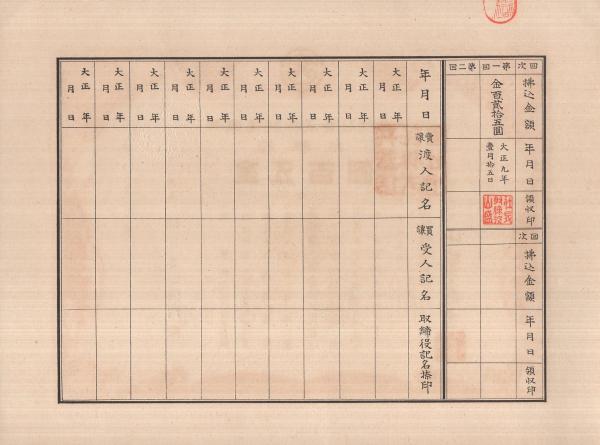 回次
拂込金額
年月日
領収印
回次
拂込金額
年月日
領収印
第一回
金百貳拾五圓
大正九年
壹月拾五日
第二回
年月日
賣讓渡人記名
買讓受人記名
取締役記名捺印
大正 年
月 日
大正 年
月 日
大正 年
月 日
大正 年
月 日
大正 年
月 日
大正 年
月 日
大正 年
月 日
大正 年
月 日
大正 年
月 日
大正 年
月 日